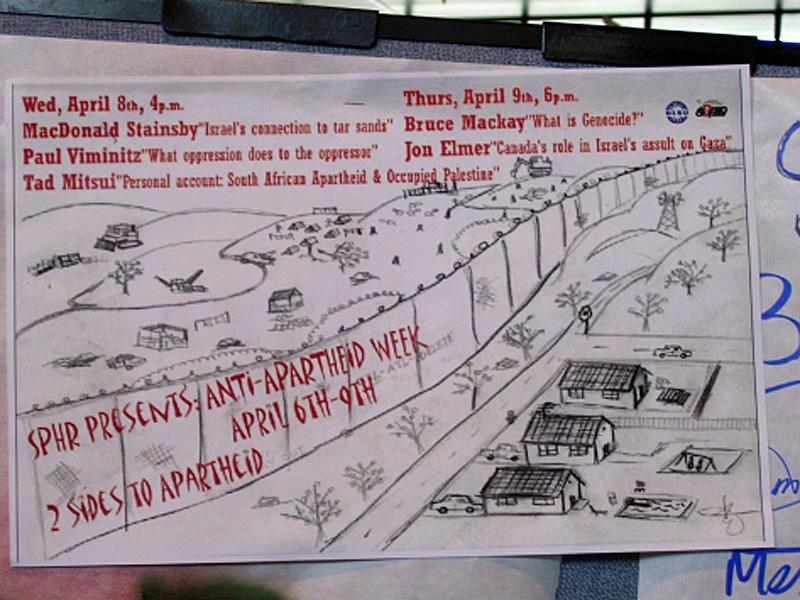 Wed, April 8th, 4p.m.
MacDonald Stainsby "Israel's connection to tar sands"
Paul Viminitz "What oppression does to the oppressor"
Tad Mitsui "Personal account: South African Apartheid & Occupied Palestine"
Thurs, April 9th, 6p.m.
Bruce Mackay "What is Genocide?"
Jon Elmer "Canada's role in Israel's assult on Gaza"
SPHR PRESENTS: ANTI-APARTHEID WEEK
APRIL 6TH-9TH
2 SIDES TO APARTHEID
DELETE
3
Me